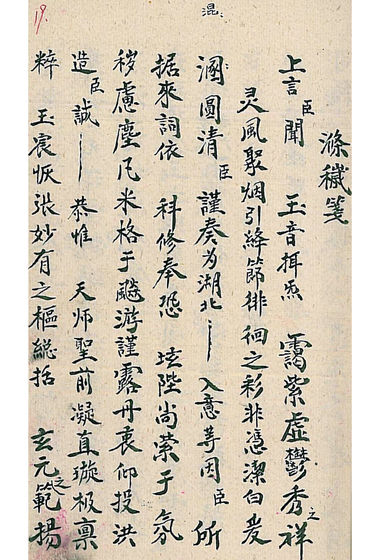 混
19.
滌穢箋
上言臣聞 玉音揖炁 靄紫虛鬱秀之祥
灵风聚烟引絳節徘徊之彩非憑潔白爰
溷圓清臣謹奏为湖北 入意等因臣所
据來詞依 科修奉恐 坛陛尚萦于氛
秽慮塵凡未格于飈游謹露丹衷仰投洪
造臣誠 恭惟 天师聖前凝直璇极禀
粹 玉宸恢張妙有之樞総括 玄元之範揚